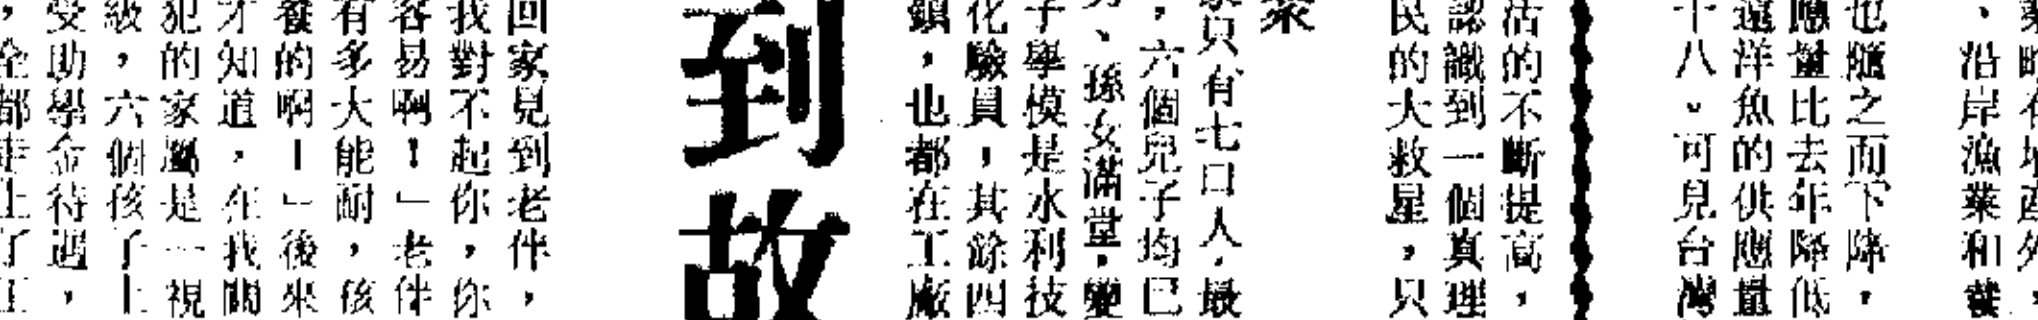 、沿岸漁業和養
也隨之而下降，
應量比去年降低
遠洋魚的供應量
十八。可見台灣
活的不斷提高，
認識到一個真理
民的大救星，只
家只有七口人，最
，六個兒子均已
、孫女滿堂，變
子學模是水利技
化驗員，其餘四
鎮，也都在工廠
到故
回家見到老伴，
我對不起你，你
容易啊！」老伴
有多大能耐，孩
養的啊！」後來
才知道，在我關
犯的家屬是一視
級，六個孩子上
受助學金待遇，
，全都走上了工